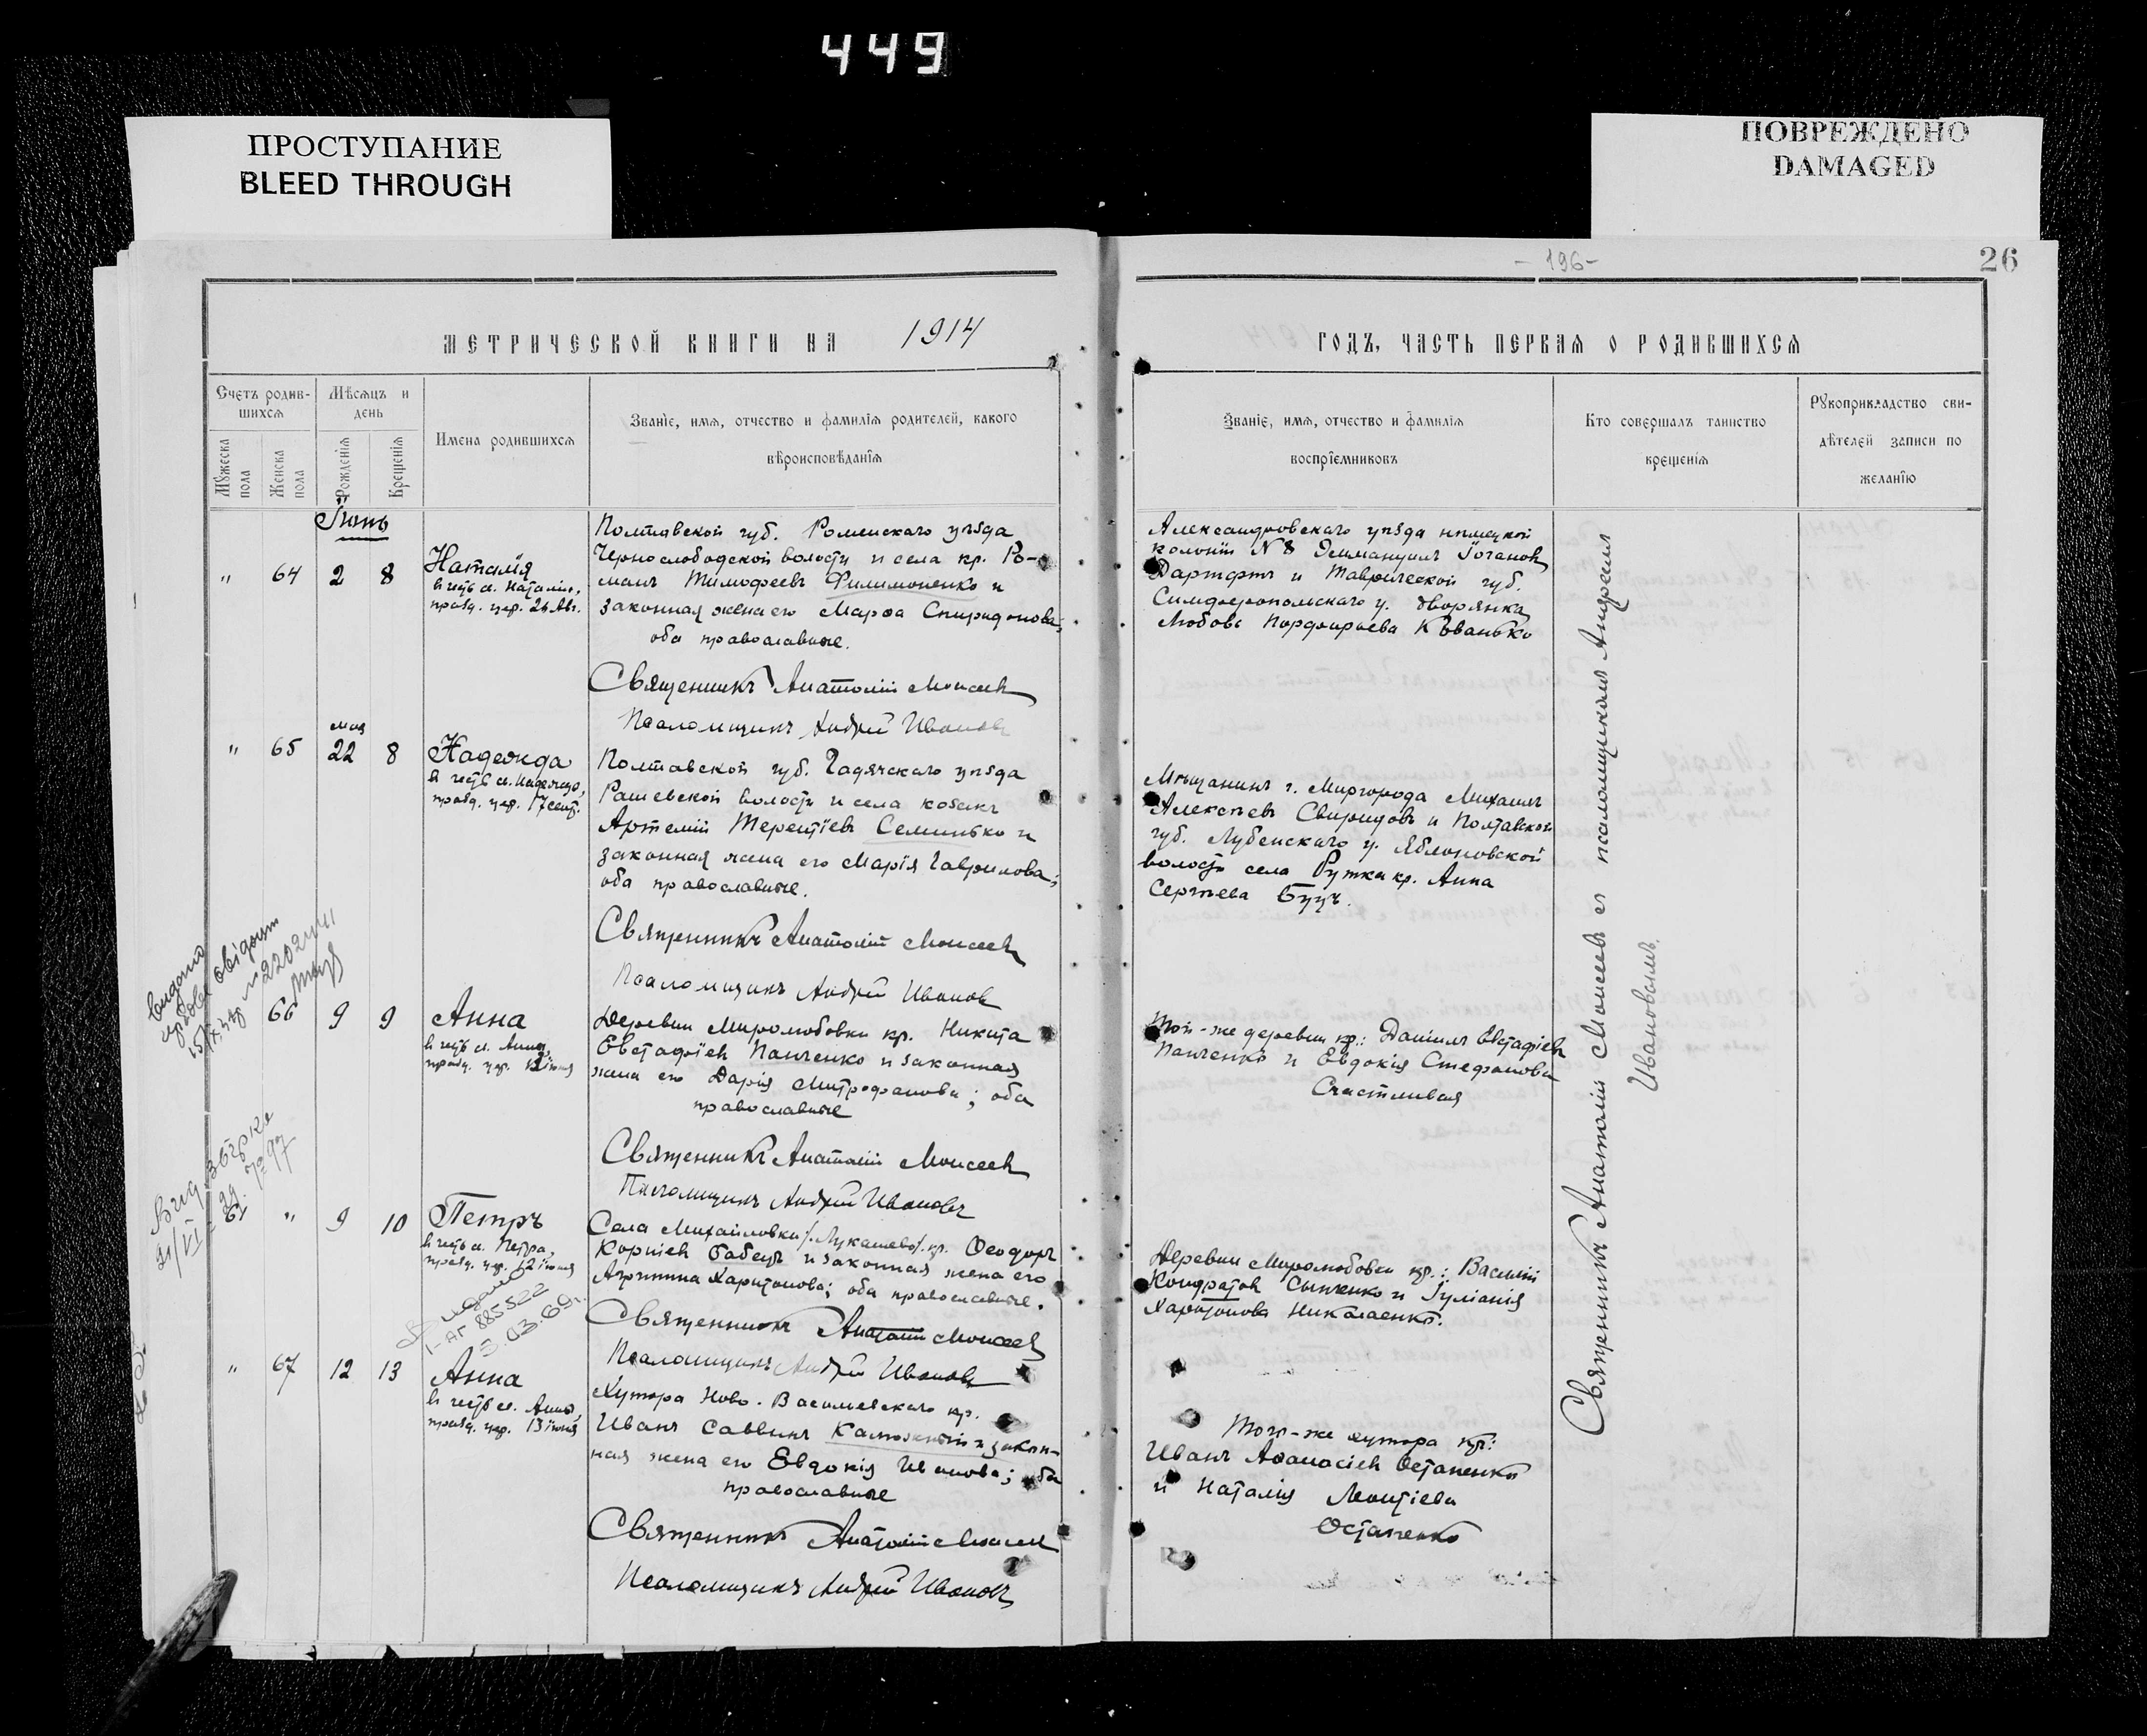 449
ПРОСТУПАНИЕ
BLEED THROUGH
ПОВРЕЖДЕНО
DAMAGED
- 196 -
26
МЕТРИЧЕСКОЙ КНИГИ НА 1914
ГОДЪ, ЧАСТЬ ПЕРВАЯ О РОДИВШИХСЯ
Счетъ родив-
шихся
Мѣсяцъ и
день
Мужеска
пола
Женска
пола
Рожденія
Крещенія
Имена родившихся
Званіе, имя, отчество и фамилія родителей, какого
вѣроисповѣданія
Званіе, имя, отчество и фамилія
воспріемниковъ
Кто совершалъ таинство
крещенія
Рукоприкладство сви-
дѣтелей записи по
желанію
Іюнь
" 64 2 8
Наталія
въ честь св. Наталіи,
празд. цер. 26 Авг.
Полтавской губ. Роменскаго уѣзда
Чернослободской волости и села кр. Ро-
манъ Тимофеевъ Филимоненко и
законная жена его Марѳа Спиридонова;
оба православные.
Священникъ Анатолій Моисеевъ
Псаломщикъ Андрей Ивановъ
Александровскаго уѣзда нѣмецкой
колоніи N 8 Іоганов
и Таврической губ.
Симферопольскаго у. дворянка
Любовь Порфирьева Кованько
мая
" 65 22 8
Надежда
въ честь св. Надежды,
празд. цер. 17 сент.
Полтавской губ. Гадячскаго уѣзда
Рашевской волости и села козакъ
Артемій Терентіевъ Семинько и
законная жена его Марія Гаврилова;
оба православные.
Священникъ Анатолій Моисеевъ
Псаломщикъ Андрей Ивановъ
Мѣщанинъ г. Миргорода Михаилъ
Алексѣевъ Свиридовъ и Полтавской
губ. Лубенскаго у. Яблоновской
волости села Рутки кр. Анна
Сергѣева Буцъ.
66 9 9
Анна
въ честь св. Анны,
празд. цер. 13 іюня
Деревни Миролюбовки кр. Никита
Евстафіевъ Панченко и законная
жена его Дарія Митрофанова; оба
православные
Священникъ Анатолій Моисеевъ
Псаломщикъ Андрей Ивановъ
Той-же деревни кр.: Даніилъ Евстафіевъ
Панченко и Евдокія Стефанова
Счастливая
61 " 9 10
Петръ
въ честь св. Петра,
празд. цер. 12 іюня
Села Михайловки /Лукашево/ кр. Ѳеодоръ
Корніевъ Бабецъ и законная жена его
Агрипина Харитонова; оба православные.
Священникъ Анатолій Моисеевъ
Псаломщикъ Андрей Ивановъ
Деревни Миролюбовки кр.: Василій
Кондратов и Іуліанія
Харитонова Николаенко.
885522
3.03.69г.
" 67 12 13
Анна
въ честь св. Анны,
празд. цер. 13 іюня
Хутора Ново-Васильевскаго кр.
Иванъ Саввинъ Калюжный и закон-
ная жена его Евдокія Иванова; оба
православные
Священникъ Анатолій Моисеевъ
Псаломщикъ Андрей Ивановъ
Того-же хутора кр.:
Иванъ Аѳанасіевъ Остапенко
и Наталія Леонтіева
Остапенко
Священникъ Анатолій Моисеевъ съ псаломщикомъ Андреемъ
Ивановымъ.